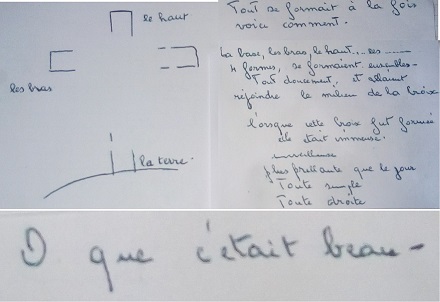 le haut
les bras
la terre.
Tout se formait à la fois
voici comment.
La base, les bras, le haut... ces
4 formes, se formaient ensembles -
Tout doucement, et allaient
rejoindre le milieu de la Croix
lorsque cette Croix fut formée
elle était immense.
merveilleuse
plus brillante que le jour
Toute simple
Toute droite
O que c'était beau -